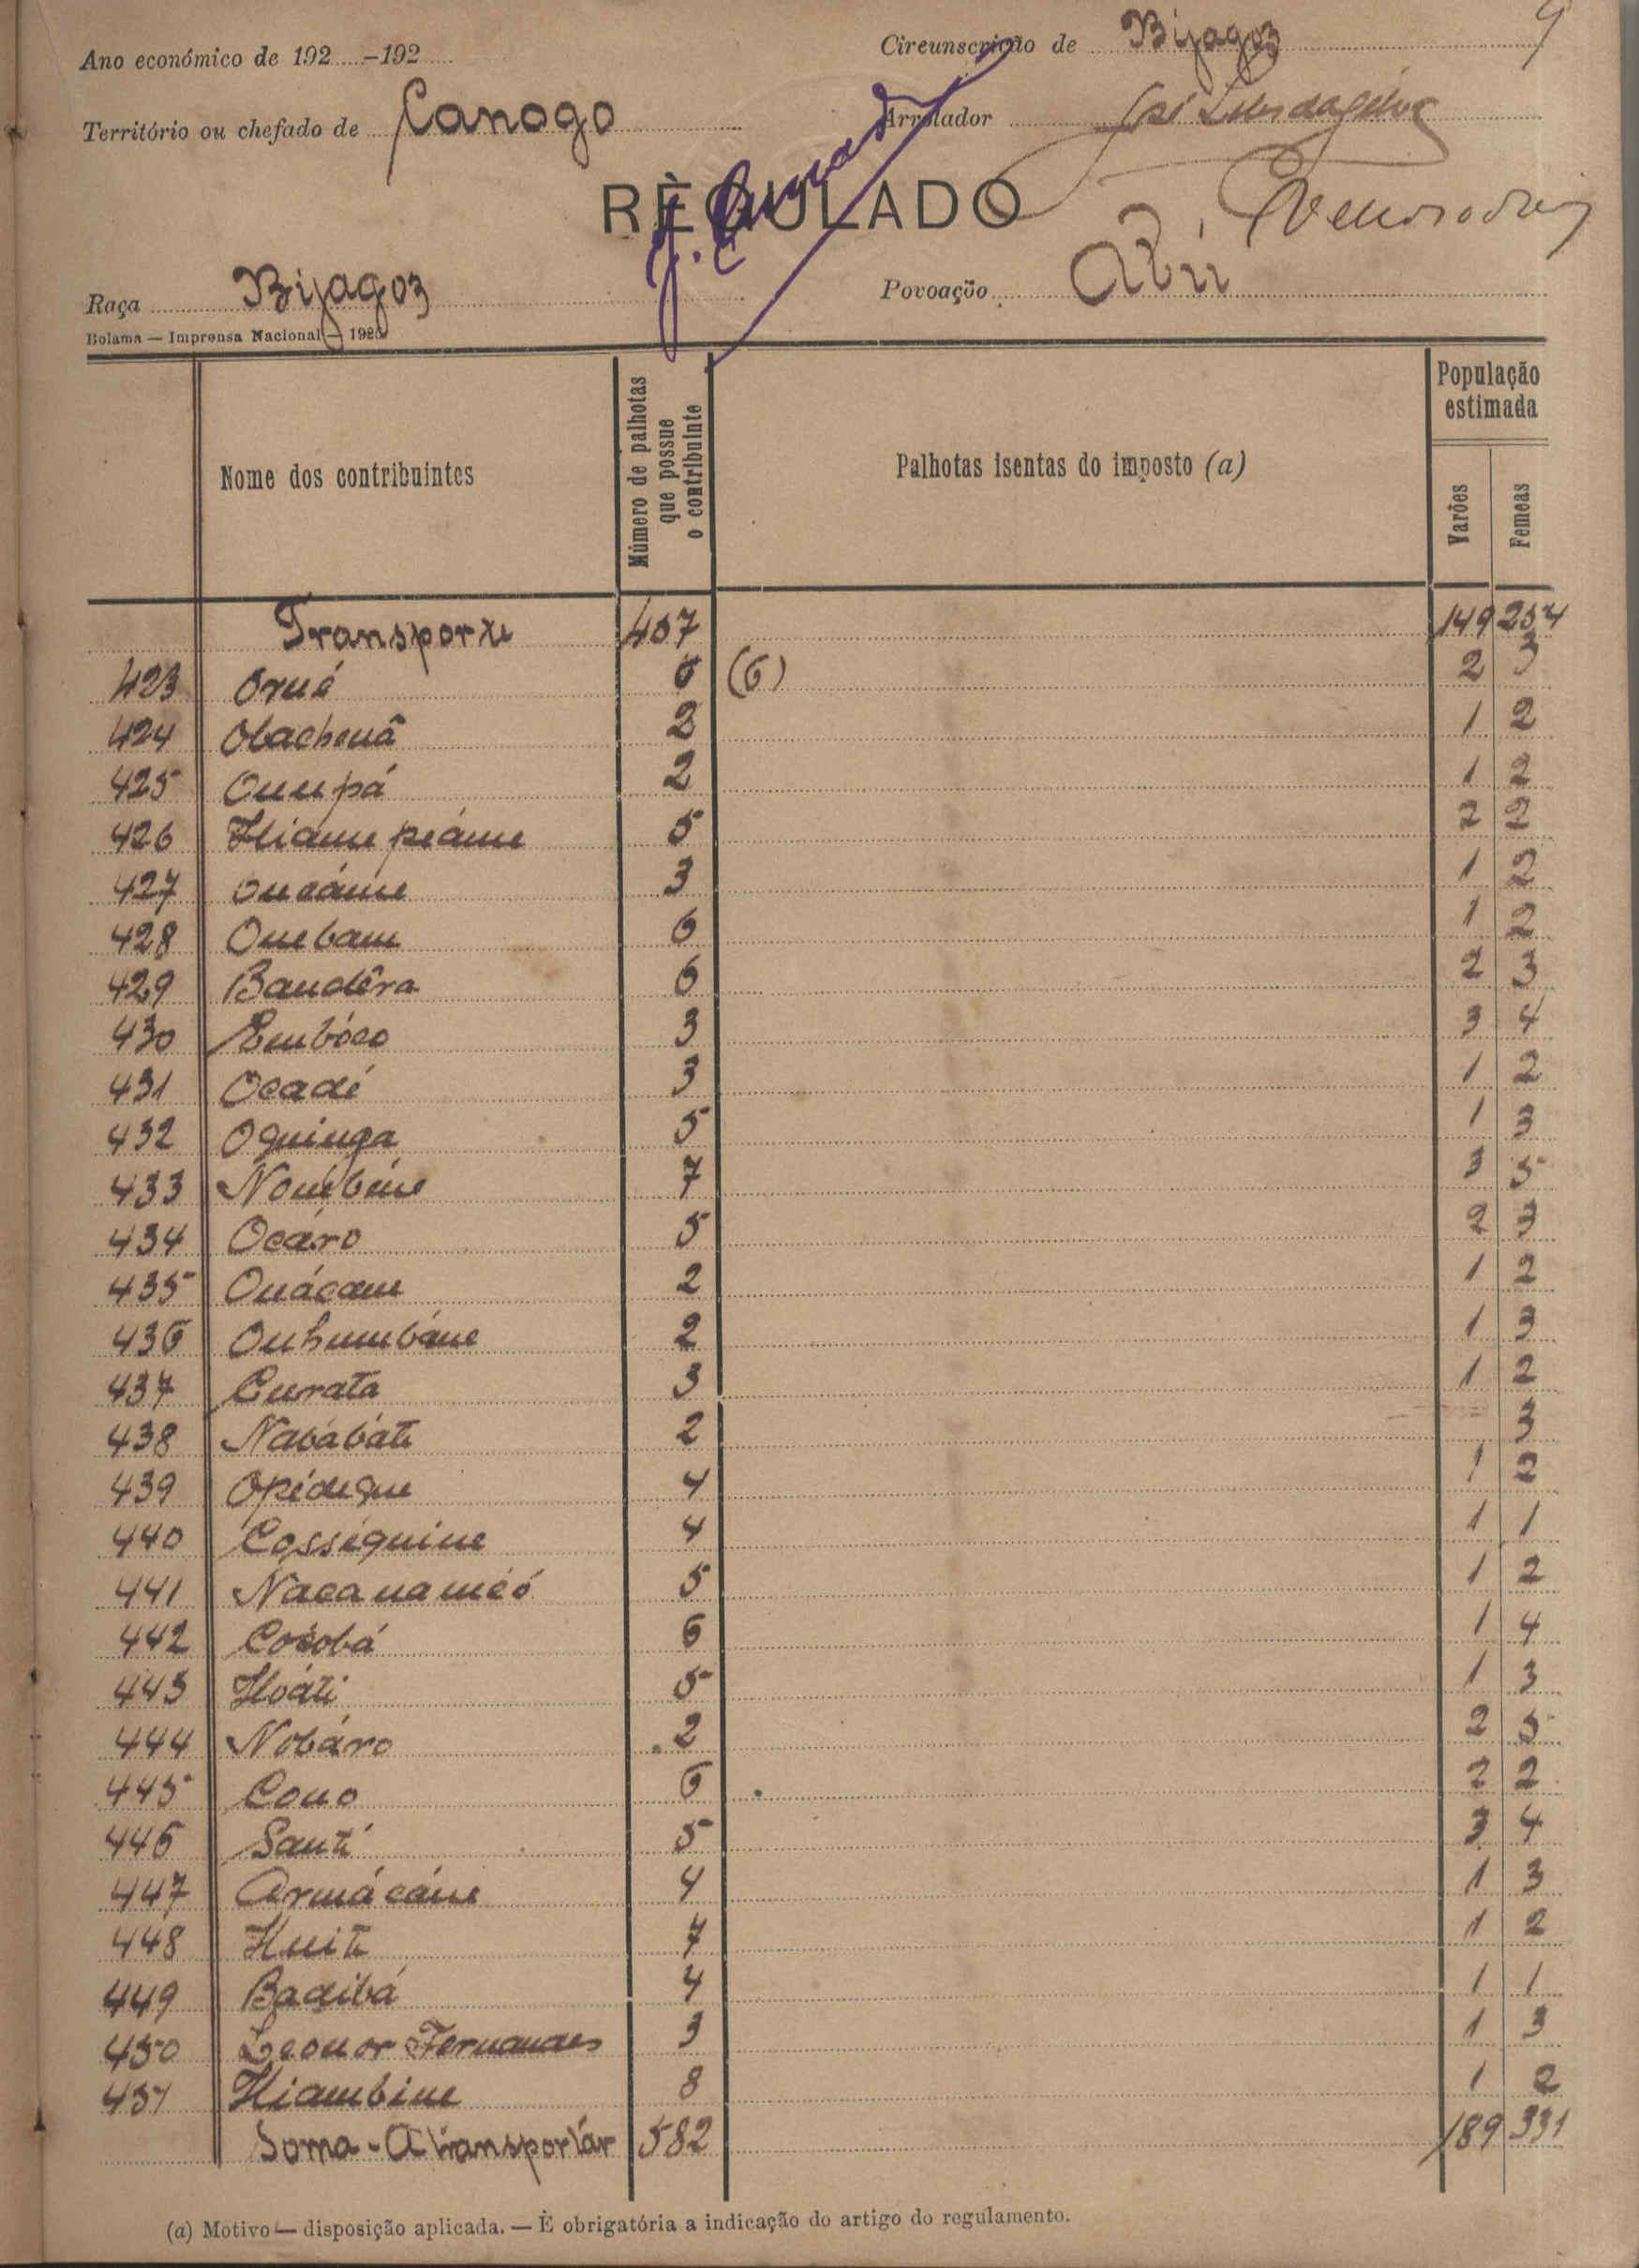 9
Ano económico de 192.....-192.....
Circunscrição de Bijagoz
Território ou chefado de Canogo
Arrolador José Luis da Silva
RÈGULADO
Raça Bijagoz
Povoação Abú
Bolama — Imprensa Nacional — 1925
Nome dos contribuintes
Número de palhotas que possue o contribuinte
Palhotas isentas do imposto (a)
População estimada
Varões
Femeas
Transporte 407 149 254
423 Oruá 6 (6) 2 3
424 Obachouâ 2 1 2
425 Ounpá 2 1 2
426 Hiamepiáme 5 2 2
427 Oucáme 3 1 2
428 Onebam 6 1 2
429 Baudêra 6 2 3
430 Embóco 3 3 4
431 Ocadé 3 1 2
432 Oquinga 5 1 3
433 Nomebine 7 3 5
434 Ocáro 5 2 3
435 Ouácam 2 1 2
436 Ouhumbáne 2 1 3
437 Curata 3 1 2
438 Nabábáti 2 3
439 Opideque 4 1 2
440 Cosséquine 4 1 1
441 Nacanaméó 5 1 2
442 Cocobá 6 1 4
443 Hoáti 5 1 3
444 Nobáro 2 2 5
445 Couo 6 2 2
446 Santi 5 3 4
447 Armácáne 4 1 3
448 Huiti 7 1 2
449 Badibá 4 1 1
450 Leonor Fernandes 3 1 3
451 Hiambine 8 1 2
Soma - A transportár 582 189 331
(a) Motivo — disposição aplicada. — È obrigatória a indicação do artigo do regulamento.